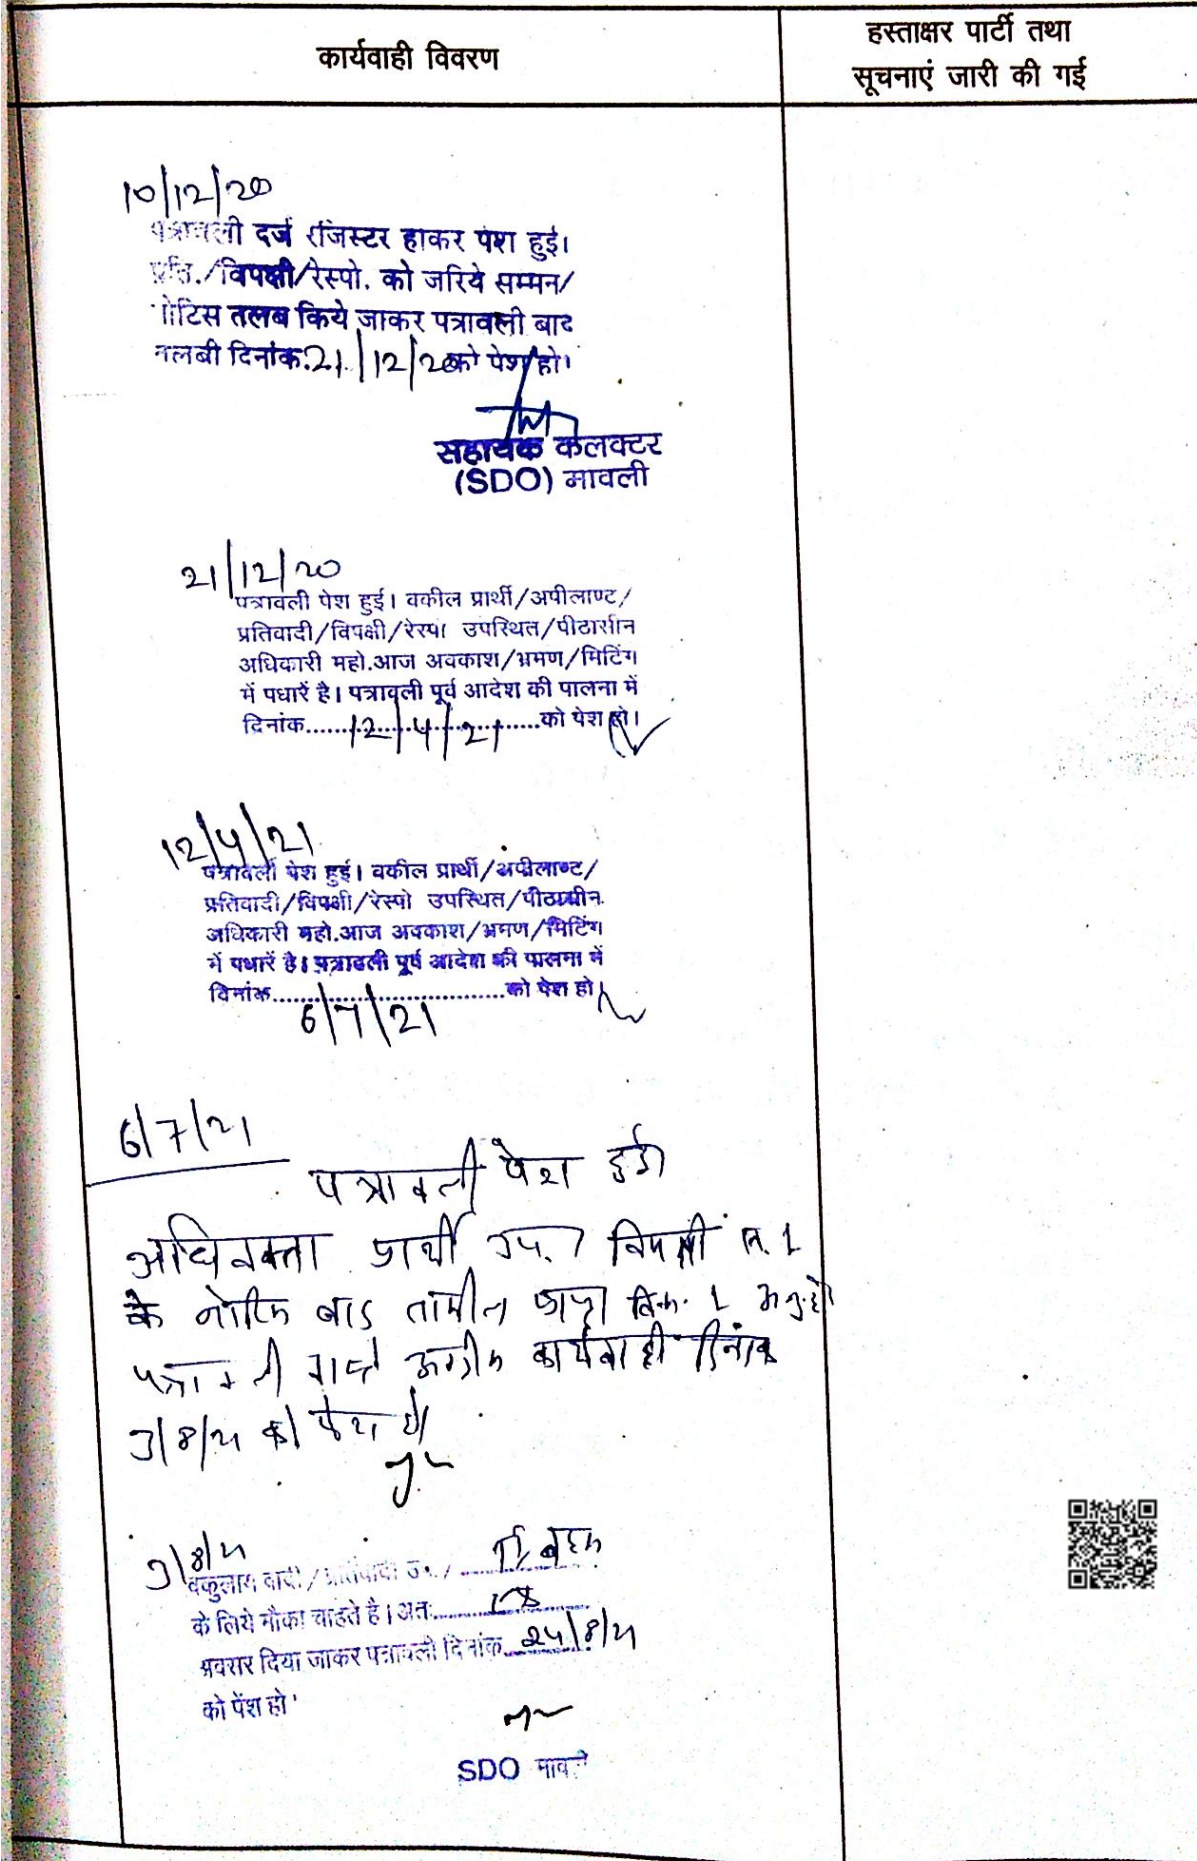 कार्यवाही विवरण
हस्ताक्षर पार्टी तथा
सूचनाएं जारी की गई
10/12/20
पत्रावली दर्ज रजिस्टर होकर पेश हुई।
प्रति./विपक्षी/रेस्पो. को जरिये सम्मन/
नोटिस तलब किये जाकर पत्रावली बाद
तलबी दिनांक.21/12/20को पेश हो।
सहायक कलक्टर
(SDO) मावली
21/12/20
पत्रावली पेश हुई। वकील प्रार्थी/अपीलाण्ट/
प्रतिवादी/विपक्षी/रेस्पो उपस्थित/पीठासीन
अधिकारी महो.आज अवकाश/भ्रमण/मिटिंग
में पधारें है। पत्रावली पूर्व आदेश की पालना में
दिनांक.....12/4/21.....को पेश हो।
12/4/21
पत्रावली पेश हुई। वकील प्रार्थी/अपीलाण्ट/
प्रतिवादी/विपक्षी/रेस्पो उपस्थित/पीठासीन
अधिकारी महो.आज अवकाश/भ्रमण/मिटिंग
में पधारें है। पत्रावली पूर्व आदेश की पालना में
दिनांक..............................को पेश हो।
6/7/21
6/7/21
पत्रावली पेश हुई।
अधिवक्ता प्रार्थी उप. विपक्षी 1
के नोटिस बाद तामील 1
पत्रावली वास्ते कार्यवाही दिनांक
3/8/21 को पेश हो।
3/8/21
वकुलाय वादी/प्रतिवादी उप./ बहस
के लिये मौका चाहते है। अतः
अवसर दिया जाकर पत्रावली दिनांक 24/8/21
को पेंश हो
SDO मावली